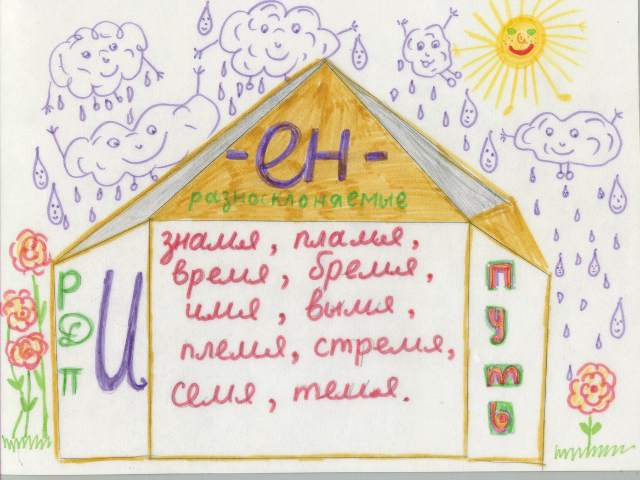 -ен-
разносклоняемые
знамя, пламя,
время, бремя,
имя, вымя,
племя, стремя,
семя, темя.
Р
Д
П
И
П
у
т
ь